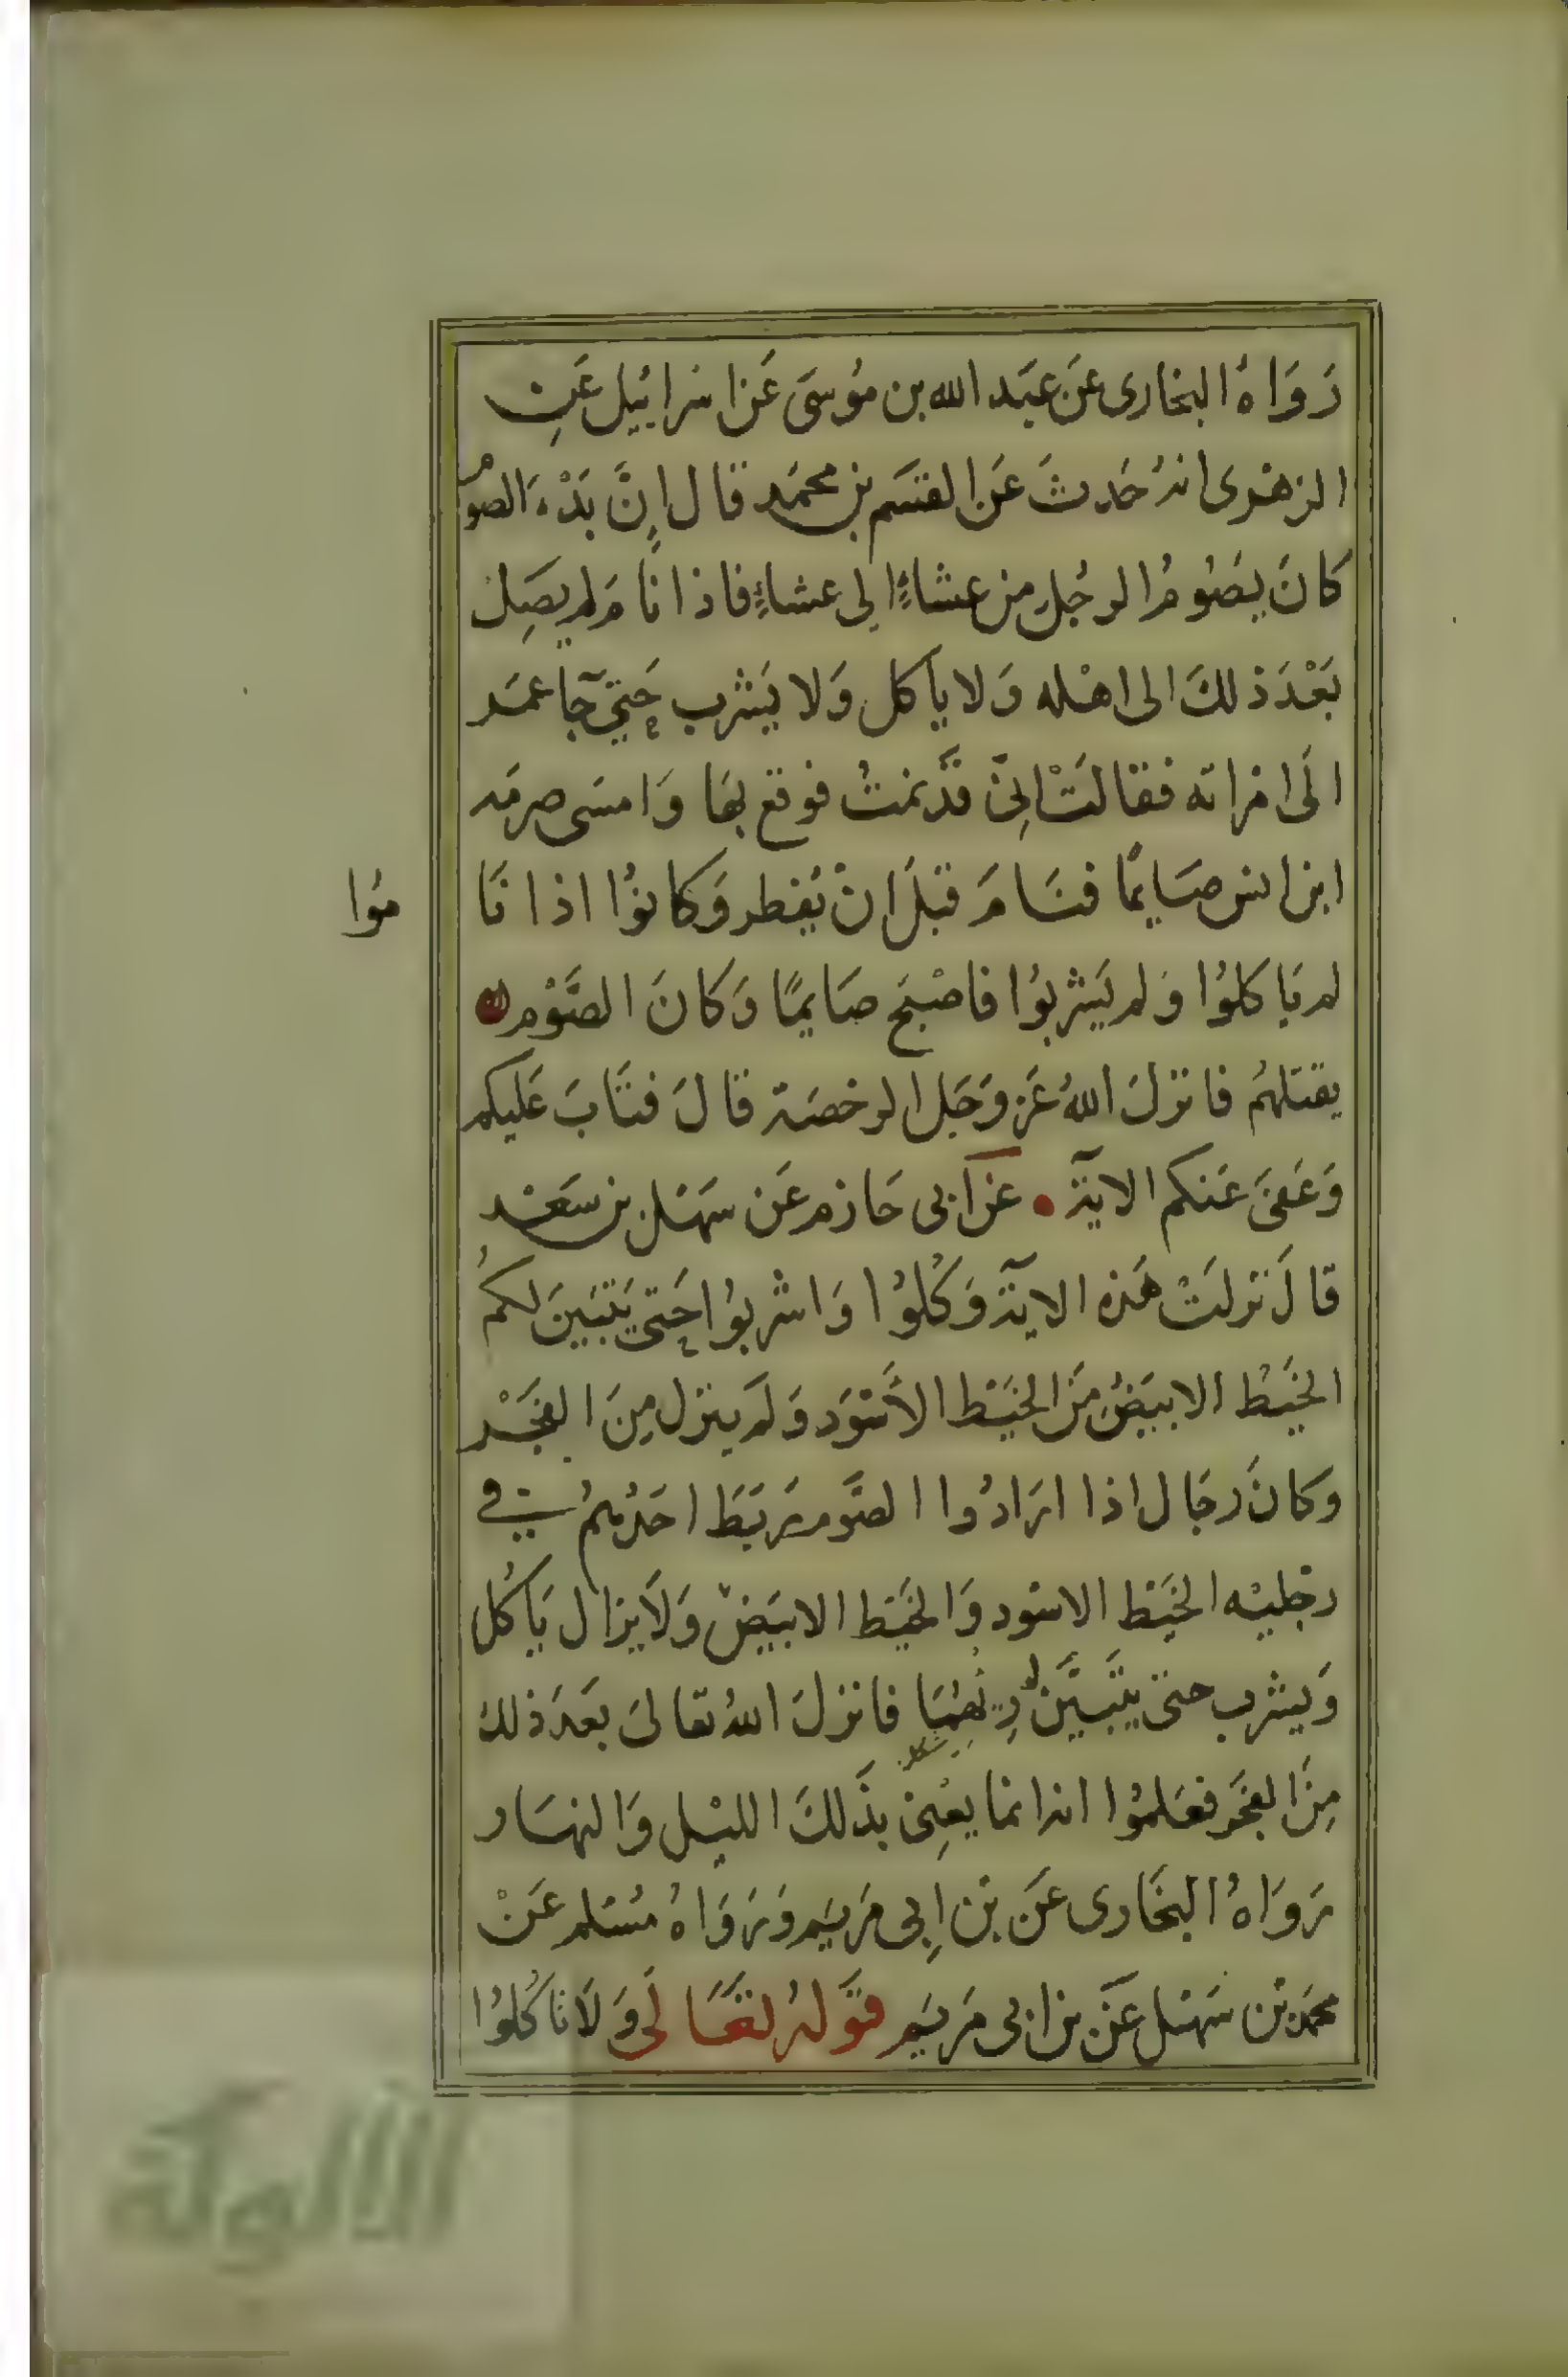 رَوَاهُ البخارى عَن عَبَد الله بن مُوسَى عَن اسرائيل عَنِ
الزهْرى انهُ حَدثَ عَن القسَم بن محمَد قال اِنَّ بَدْءَ الصَوم
كانَ يصُومُ الرجُل من عشاءٍ الى عشاءٍ فاذا نَامَ لم يصِل
بَعْدَ ذلكَ الى اهْله وَلا ياكل وَلا يَشرب حَتىّ جآ عمَر
الَى امراته فقالتْ اِنىّ قدْ نمتُ فوقع بهَا وَامسَى صرمَه
ابن انس صَايمًا فنَامَ قبْلَ انْ يفطر وَكانوُا اذا نَا
موُا
لم يَاكلوُا وَلم يَشربوُا فاصْبحَ صَايمًا وَكانَ الصَّوْم
يقتلهُم فانزلَ اللهُ عَز وَجَل الرخصَة قالَ فتَابَ عَليكم
وَعَفىَ عَنكم الايَة عَن ابى حَازم عَن سَهْل بن سَعْد
قالَ نزلَتْ هَذه الايَة وَكُلوُا وَاشربوُا حَتى يَتبَينَ لكمُ
الخيَطُ الابيَضُ منَ الخيَط الأَسْوَد وَلم ينزل مِنَ الفجَرْ
وَكانَ رجَال اذا ارَادُوا الصَوم رَبَطَ احَدُهمُ في
رجْليْه الخيَط الاسْود وَالخيَط الابيَضْ وَلَا يزال يَاكُل
وَيشرب حتىَ يتَبَيَّنَ لُه رِيُهمَا فانزلَ اللهُ تعَالىَ بَعَد ذلكَ
مِنَ الفجَر فعَلموُا انه انما يعْنِى بذَلكَ الليْل وَالنهَار
رَوَاهُ البخَارى عَن بن اِبى مَريَم وَرَوَاهُ مُسْلم عَنْ
محمَد بن سَهْل عَن بن ابى مَريَم قوَلهُ تعَالَى وَلَا تاكُلوُا
الألوكة